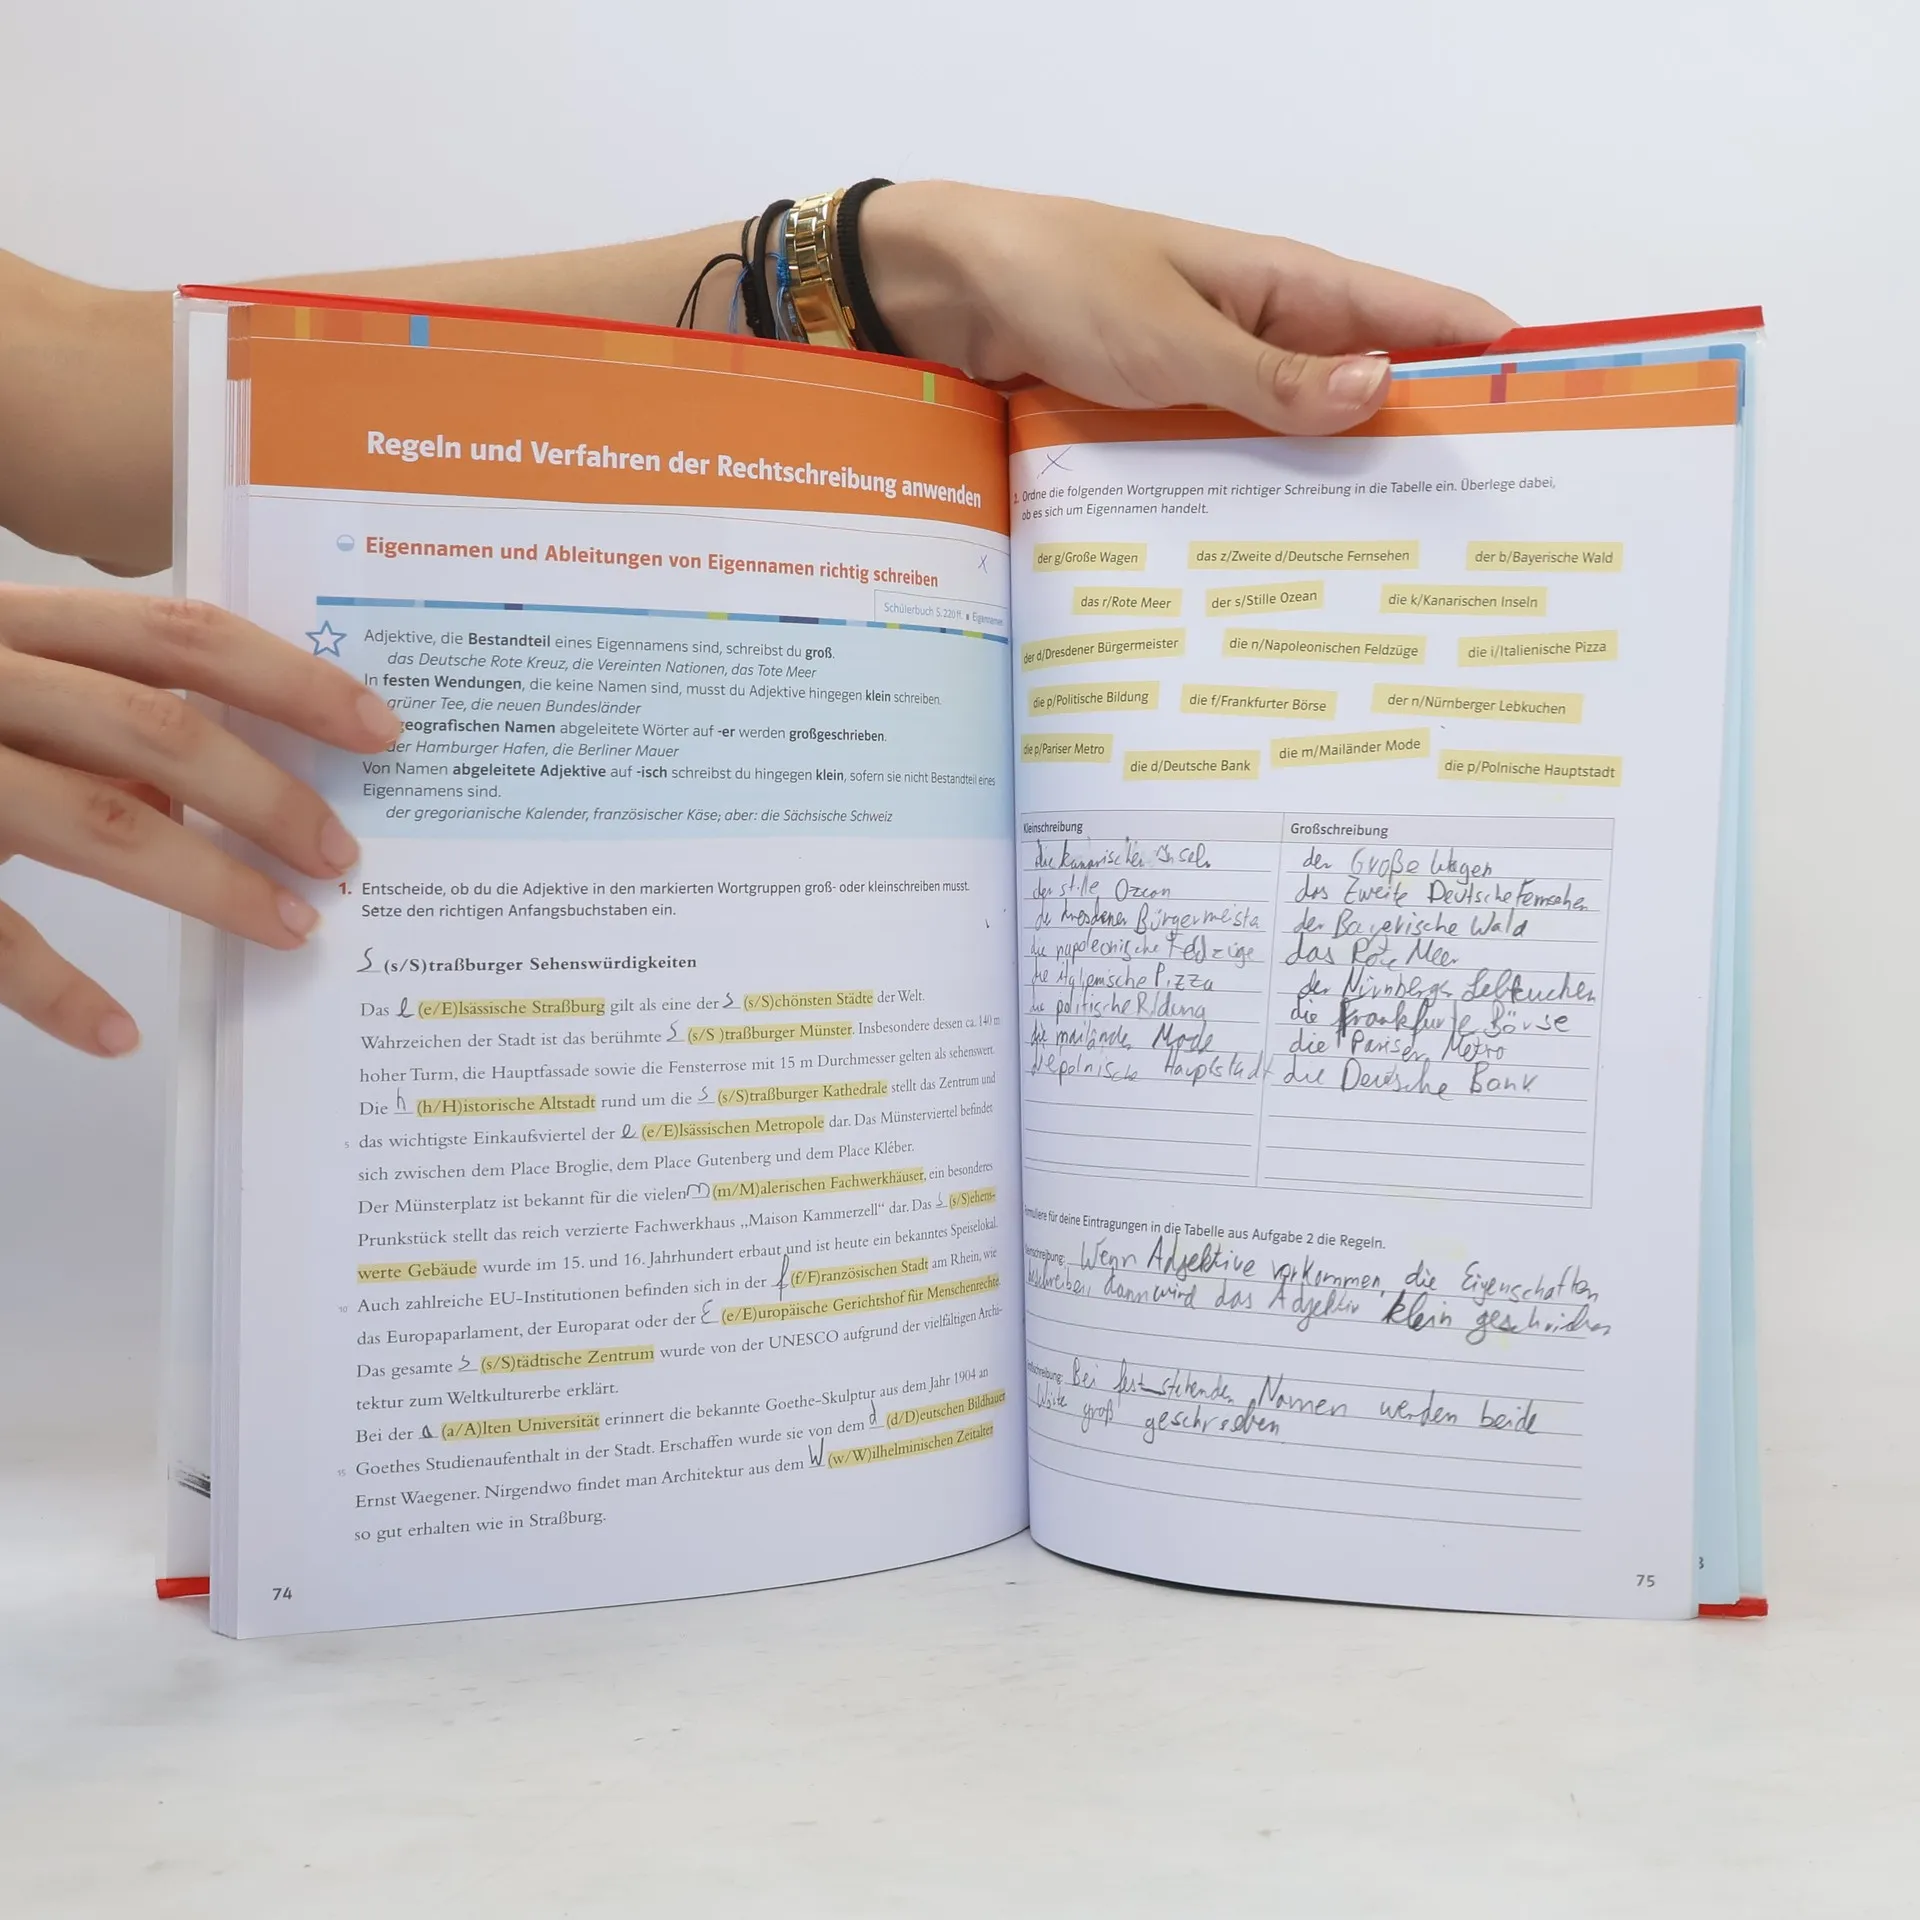 Regeln und Verfahren der Rechtschreibung anwenden
Eigennamen und Ableitungen von Eigennamen richtig schreiben
X
Schülerbuch S. 220 ff. ■ Eigennamen
Adjektive, die Bestandteil eines Eigennamens sind, schreibst du groß.
das Deutsche Rote Kreuz, die Vereinten Nationen, das Tote Meer
In festen Wendungen, die keine Namen sind, musst du Adjektive hingegen klein schreiben.
grüner Tee, die neuen Bundesländer
geografischen Namen abgeleitete Wörter auf -er werden großgeschrieben.
der Hamburger Hafen, die Berliner Mauer
Von Namen abgeleitete Adjektive auf -isch schreibst du hingegen klein, sofern sie nicht Bestandteil eines
Eigennamens sind.
der gregorianische Kalender, französischer Käse; aber: die Sächsische Schweiz
1. Entscheide, ob du die Adjektive in den markierten Wortgruppen groß- oder kleinschreiben musst.
Setze den richtigen Anfangsbuchstaben ein.
S (s/S)traßburger Sehenswürdigkeiten
Das e (e/E)lsässische Straßburg gilt als eine der s (s/S)chönsten Städte der Welt.
Wahrzeichen der Stadt ist das berühmte S (s/S )traßburger Münster. Insbesondere dessen ca. 140 m
hoher Turm, die Hauptfassade sowie die Fensterrose mit 15 m Durchmesser gelten als sehenswert.
Die h (h/H)istorische Altstadt rund um die S (s/S)traßburger Kathedrale stellt das Zentrum und
5 das wichtigste Einkaufsviertel der e (e/E)lsässischen Metropole dar. Das Münsterviertel befindet
sich zwischen dem Place Broglie, dem Place Gutenberg und dem Place Kléber.
Der Münsterplatz ist bekannt für die vielen m (m/M)alerischen Fachwerkhäuser, ein besonderes
Prunkstück stellt das reich verzierte Fachwerkhaus „Maison Kammerzell“ dar. Das s (s/S)ehens-
werte Gebäude wurde im 15. und 16. Jahrhundert erbaut und ist heute ein bekanntes Speiselokal.
10 Auch zahlreiche EU-Institutionen befinden sich in der f (f/F)ranzösischen Stadt am Rhein, wie
das Europaparlament, der Europarat oder der E (e/E)uropäische Gerichtshof für Menschenrechte.
Das gesamte s (s/S)tädtische Zentrum wurde von der UNESCO aufgrund der vielfältigen Archi-
tektur zum Weltkulturerbe erklärt.
Bei der a (a/A)lten Universität erinnert die bekannte Goethe-Skulptur aus dem Jahr 1904 an
15 Goethes Studienaufenthalt in der Stadt. Erschaffen wurde sie von dem d (d/D)eutschen Bildhauer
Ernst Waegener. Nirgendwo findet man Architektur aus dem W (w/W)ilhelminischen Zeitalter
so gut erhalten wie in Straßburg.
74
X
2. Ordne die folgenden Wortgruppen mit richtiger Schreibung in die Tabelle ein. Überlege dabei,
ob es sich um Eigennamen handelt.
der g/Große Wagen das z/Zweite d/Deutsche Fernsehen der b/Bayerische Wald
das r/Rote Meer der s/Stille Ozean die k/Kanarischen Inseln
der d/Dresdener Bürgermeister die n/Napoleonischen Feldzüge die i/Italienische Pizza
die p/Politische Bildung die f/Frankfurter Börse der n/Nürnberger Lebkuchen
die p/Pariser Metro die d/Deutsche Bank die m/Mailänder Mode die p/Polnische Hauptstadt
Kleinschreibung Großschreibung
die kanarischen Inseln der Große Wagen
der stille Ozean das Zweite Deutsche Fernsehen
der dresdener Bürgermeister der Bayerische Wald
die napoleonische Feldzüge das Rote Meer
die italienische Pizza der Nürnberger Lebkuchen
die politische Bildung die Frankfurte Börse
die mailänder Mode die Pariser Metro
die polnische Hauptstadt die Deutsche Bank
für deine Eintragungen in die Tabelle aus Aufgabe 2 die Regeln.
Wenn Adjektive vorkommen, die Eigenschaften
beschreiben, dann wird das Adjektiv klein geschrieben
Bei fest stehenden Namen werden beide
groß geschrieben
75